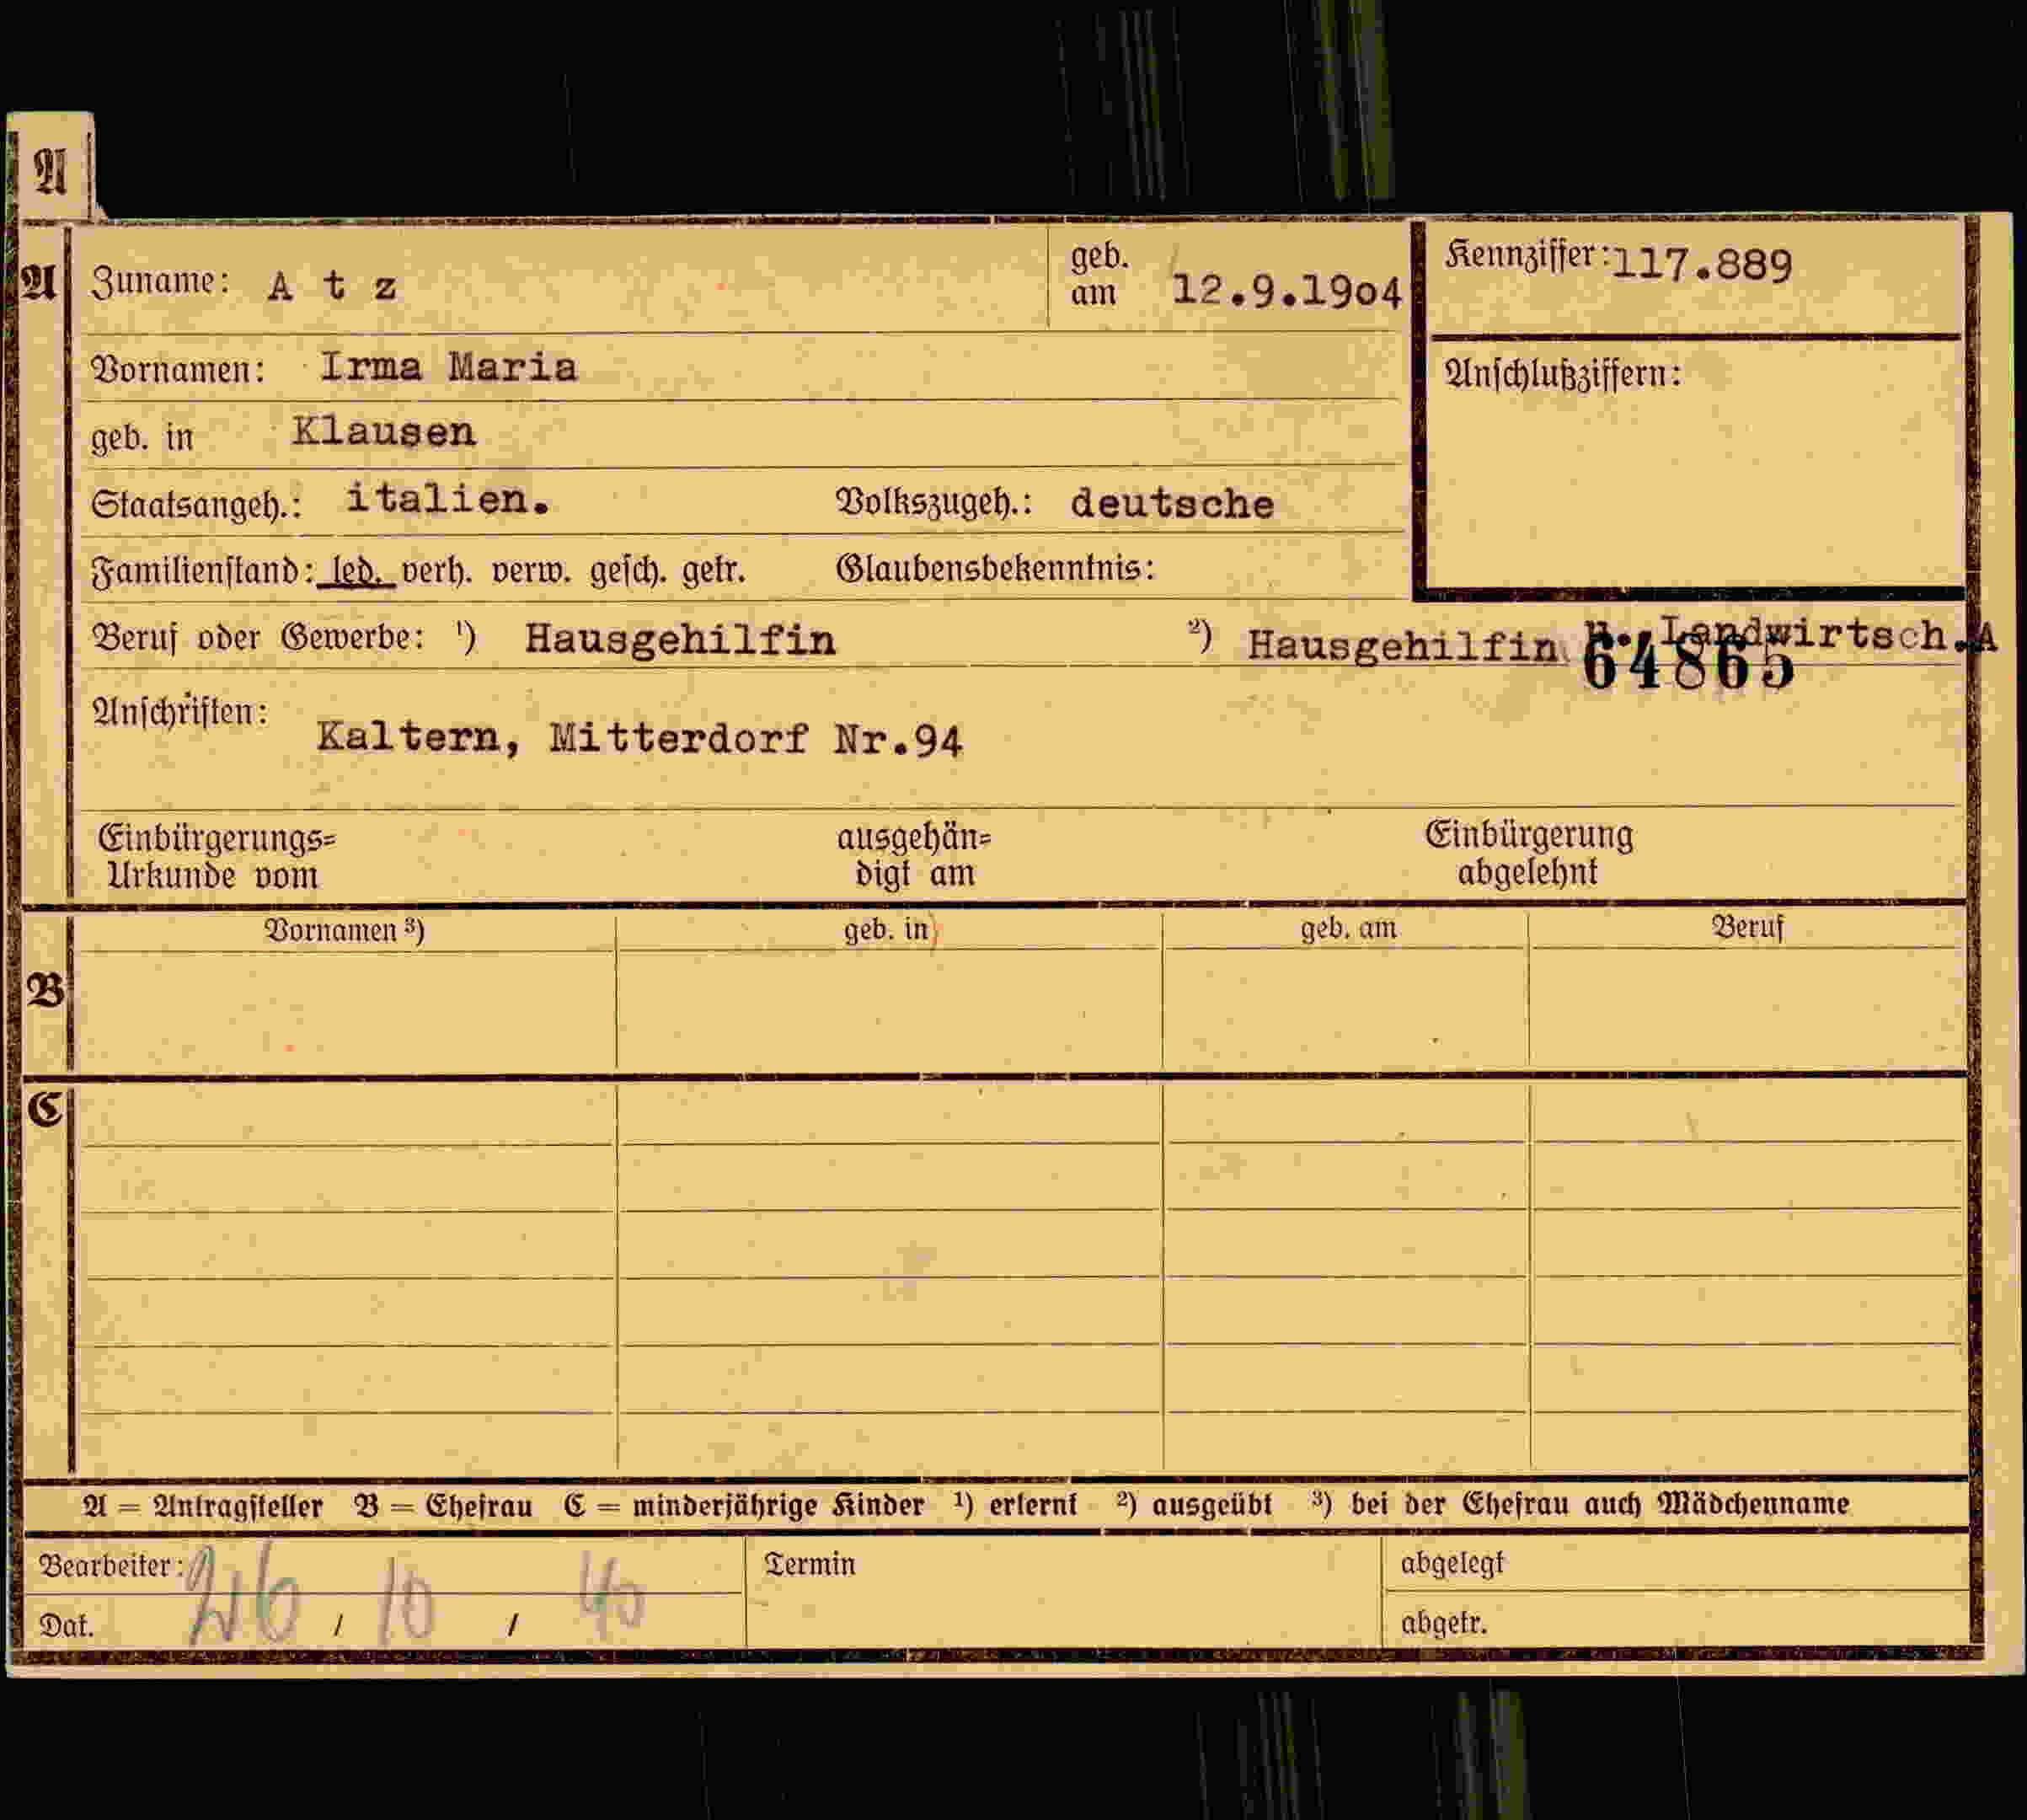 A
A Zuname: A t z geb. am 12.9.19o4 Kennziffer: 117.889
Vornamen: Irma Maria Anschlußziffern:
geb. in Klausen
Staatsangeh.: italien. Volkszugeh.: deutsche
Familienstand: led. verh. verw. gesch. getr. Glaubensbekenntnis:
Beruf oder Gewerbe: ¹) Hausgehilfin ²) Hausgehilfin u. Landwirtsch.A
64865
Anschriften:
Kaltern, Mitterdorf Nr.94
Einbürgerungs= ausgehän= Einbürgerung
Urkunde vom digt am abgelehnt
Vornamen ³) geb. in geb. am Beruf
B
C
A = Antragsteller B = Ehefrau C = minderjährige Kinder ¹) erlernt ²) ausgeübt ³) bei der Ehefrau auch Mädchenname
Bearbeiter: Termin abgelegt
Dat. 26 / 10 / 40 abgetr.